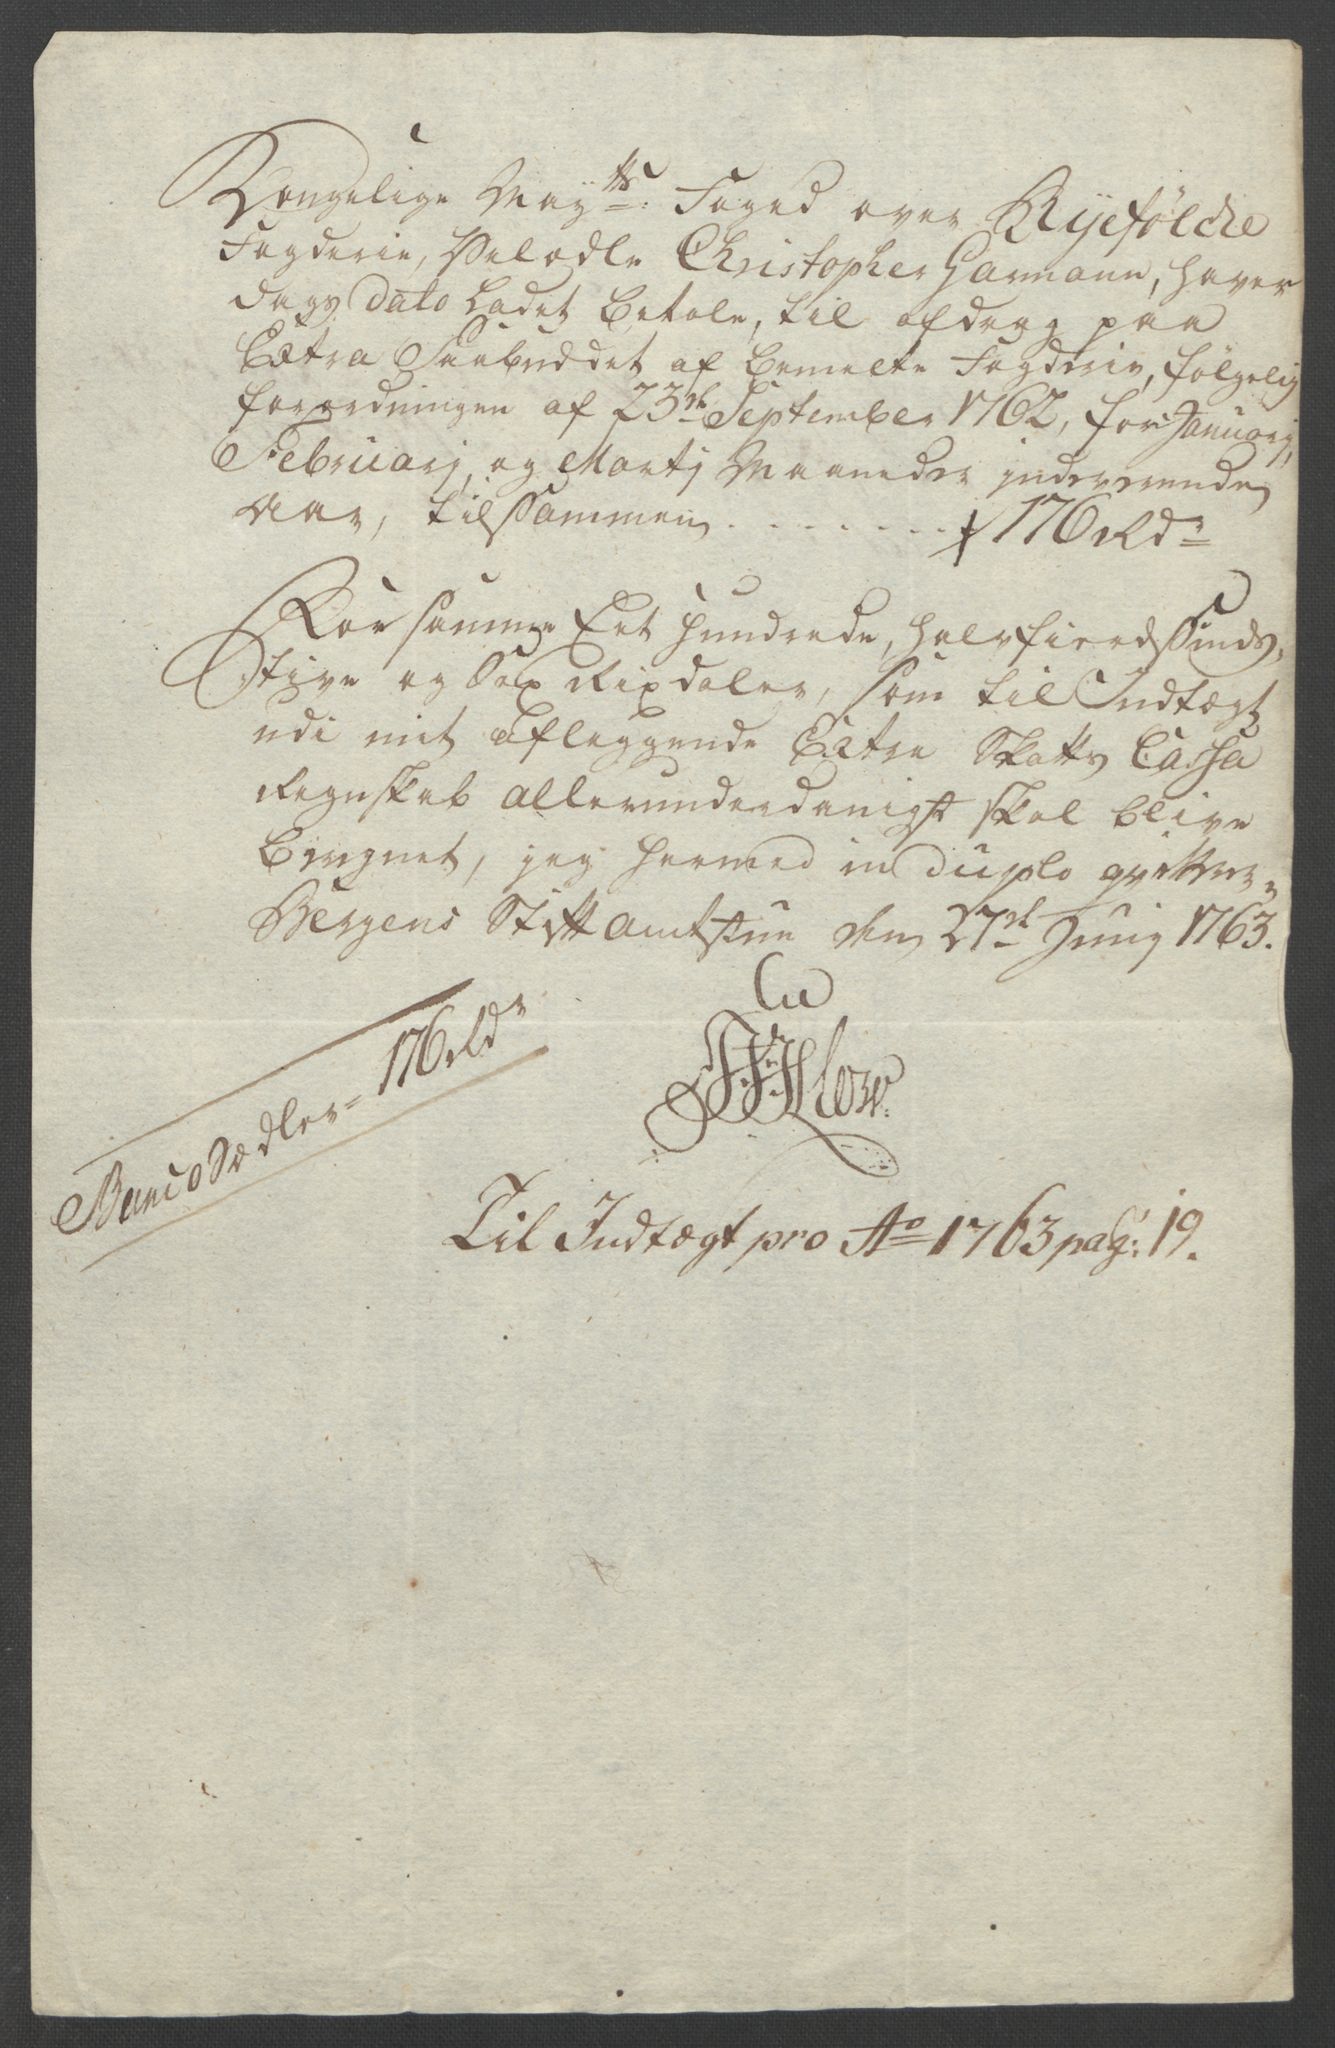 Kongelige May.tts Foged over Ryefölche
Fogderie, Velædle Christopher Garmann, haver
dags dato ladet betale, til afdrag paa
Extra Paabuddet af bemelte Fogderie, følgelig
forordningen af 23de September 1762, for Januarij,
Februarij, og Martij Maaneder indeverende
Aar, tilsammen . . . . . . . . 176 Rdr
For samme Eet hundrede, halvfierdsinds-
tive og Sex Rixdaler, som til Indtægt
udi mit aflæggende Extra Skatts Cassa
Regnskab allerunderdanigst skal blive
beregnet, jeg hermed in duplo qvitterer
Bergens Stiftamtstue den 27de Junij 1763.
Banco Sædler = 176 Rdr
Til Indtægt pro Ao 1763 pag: 19.